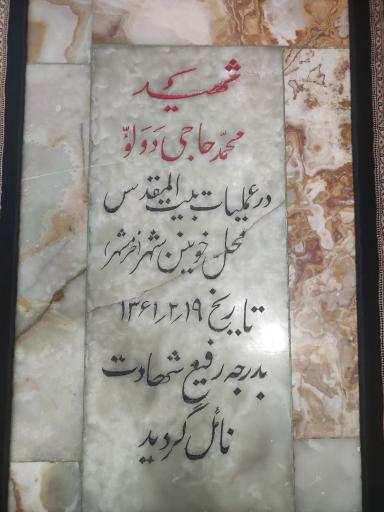 شهید
محمّد حاجی دَوَلوُ
در عملیات بیت المقدس
محل خونین شهر (خرمشهر)
تاریخ ۱۳۶۱٫۲٫۱۹
بدرجه رفیع شهادت
نائل گردید